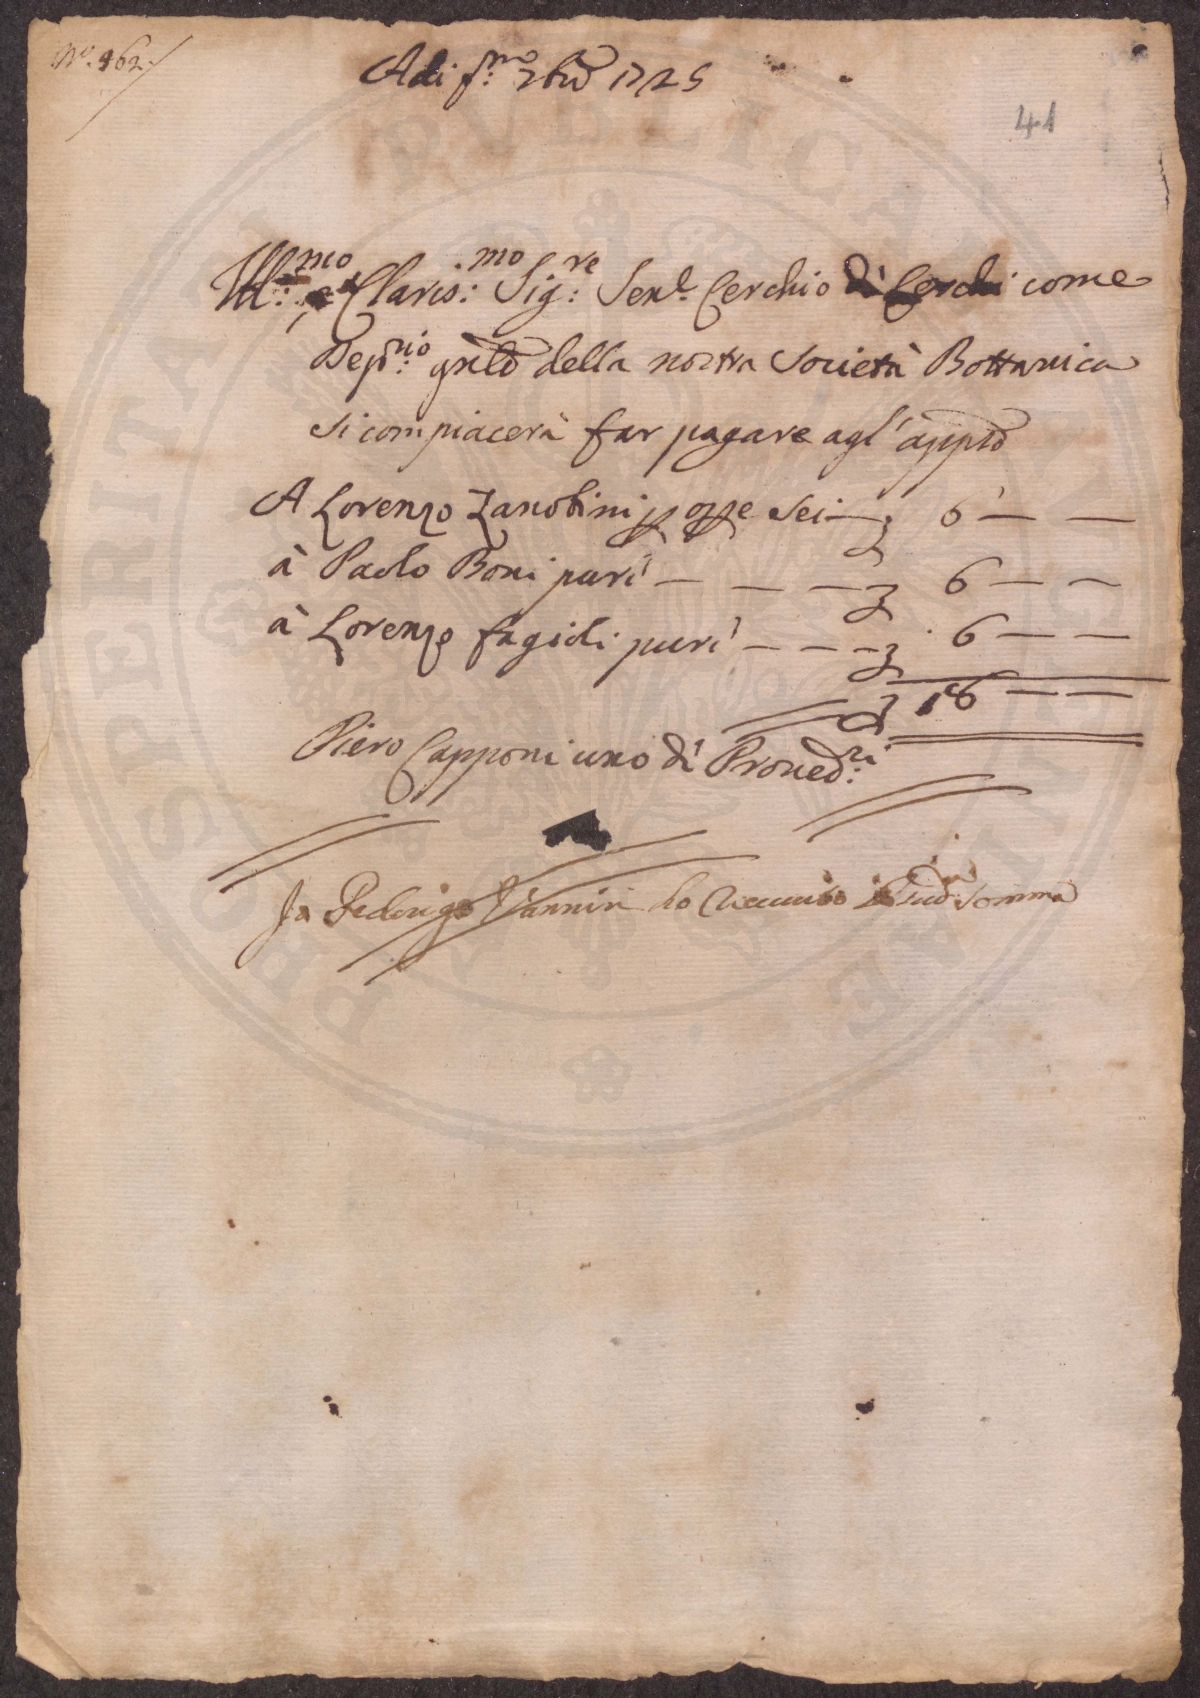 N.º 462.
Adi p.mo 7bre 1725
41
Ill:mo e Claris:mo Sig:re Sen.e Cerchio di Cerchi come
Dep:rio gnle della nostra Società Bottanica
si compiacerà far pagare agl' appiè
A Lorenzo Zanobini p opre sei 6 — —
à Paolo Boni pari — — — 6 — —
à Lorenzo fagioli pari — — — 6 — —
18 — —
Piero Capponi uno di Proued:ri
Io Federigo Vannini ho riceuuto Sud.a Somma
PROSPERITATI PVBLICAE